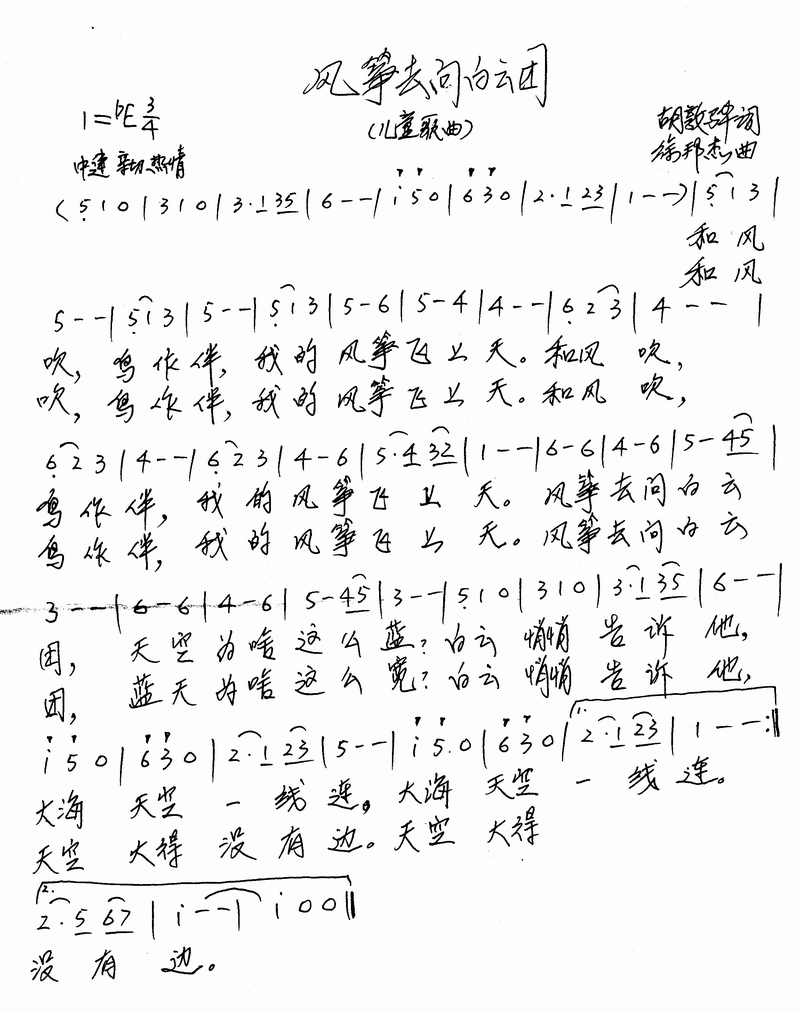 风筝去问白云团
(儿童歌曲)
1=bE 3/4
胡敦骅词
中速 亲切 热情
徐邦杰曲
(5 1 0 | 3 1 0 | 3· 1 35 | 6 - - | i 5 0 | 6 3 0 | 2· 1 23 | 1 - -) | 5 1 3 |
和风
和风
5 - - | 5 1 3 | 5 - - | 5 1 3 | 5 - 6 | 5 - 4 | 4 - - | 6 2 3 | 4 - - |
吹,鸟作伴,我的风筝飞上天。和风吹,
吹,鸟作伴,我的风筝飞上天。和风吹,
6 2 3 | 4 - - | 6 2 3 | 4 - 6 | 5· 4 32 | 1 - - | 6 - 6 | 4 - 6 | 5 - 45 |
鸟作伴,我的风筝飞上天。风筝去问白云
鸟作伴,我的风筝飞上天。风筝去问白云
3 - - | 6 - 6 | 4 - 6 | 5 - 45 | 3 - - | 5 1 0 | 3 1 0 | 3· 1 35 | 6 - - |
团,天空为啥这么蓝?白云悄悄告诉他,
团,蓝天为啥这么宽?白云悄悄告诉他,
i 5 0 | 6 3 0 | 2· 1 23 | 5 - - | i 5. 0 | 6 3 0 | 1. 2· 1 23 | 1 - - :||
大海天空一线连,大海天空一线连。
天空大得没有边。天空大得
2. 2· 5 67 | i - - | i 0 0 ||
没有边。